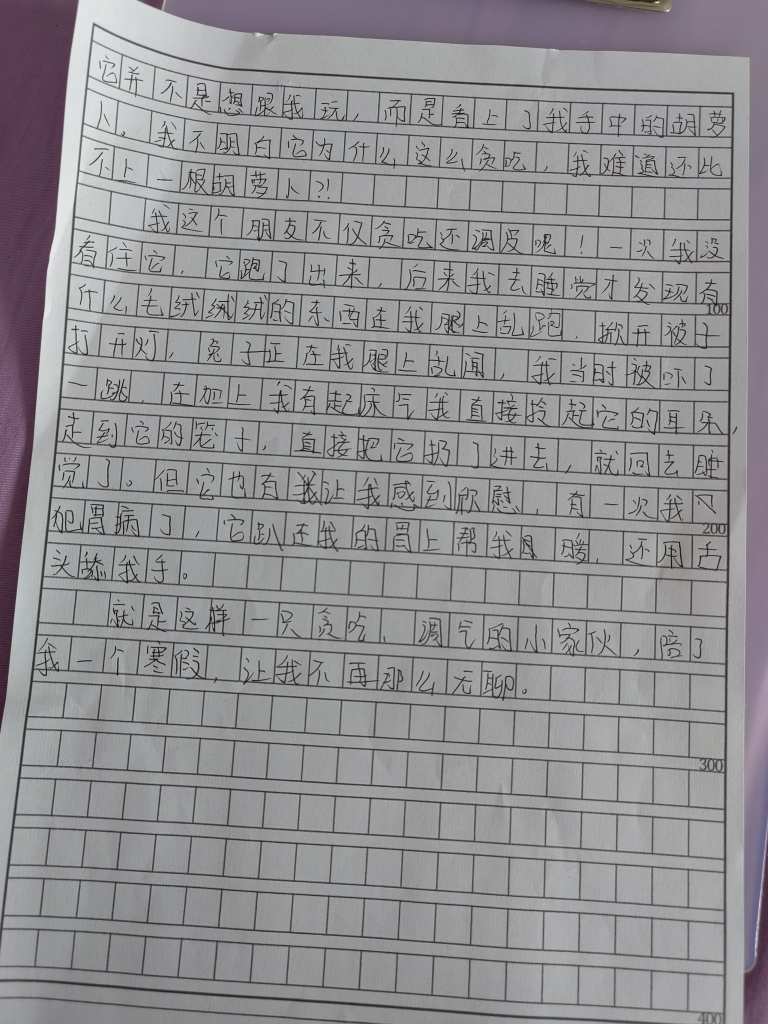 它并不是想跟我玩，而是看上了我手中的胡萝
卜，我不明白它为什么这么贪吃，我难道还比
不上一根胡萝卜?!
我这个朋友不仅贪吃还调皮呢！一次我没
看住它，它跑了出来，后来我去睡觉才发现有
100
什么毛绒绒绒的东西在我腿上乱跑，掀开被子
打开灯，兔子正在我腿上乱闻，我当时被吓了
一跳，在加上我有起床气我直接拎起它的耳朵，
走到它的笼子，直接把它扔了进去，就回去睡
觉了。但它也有让我感到欣慰，有一次我又
200
犯胃病了，它趴在我的胃上帮我暖，还用舌
头舔我手。
就是这样一只贪吃、调气的小家伙，陪了
我一个寒假，让我不再那么无聊。
300
400